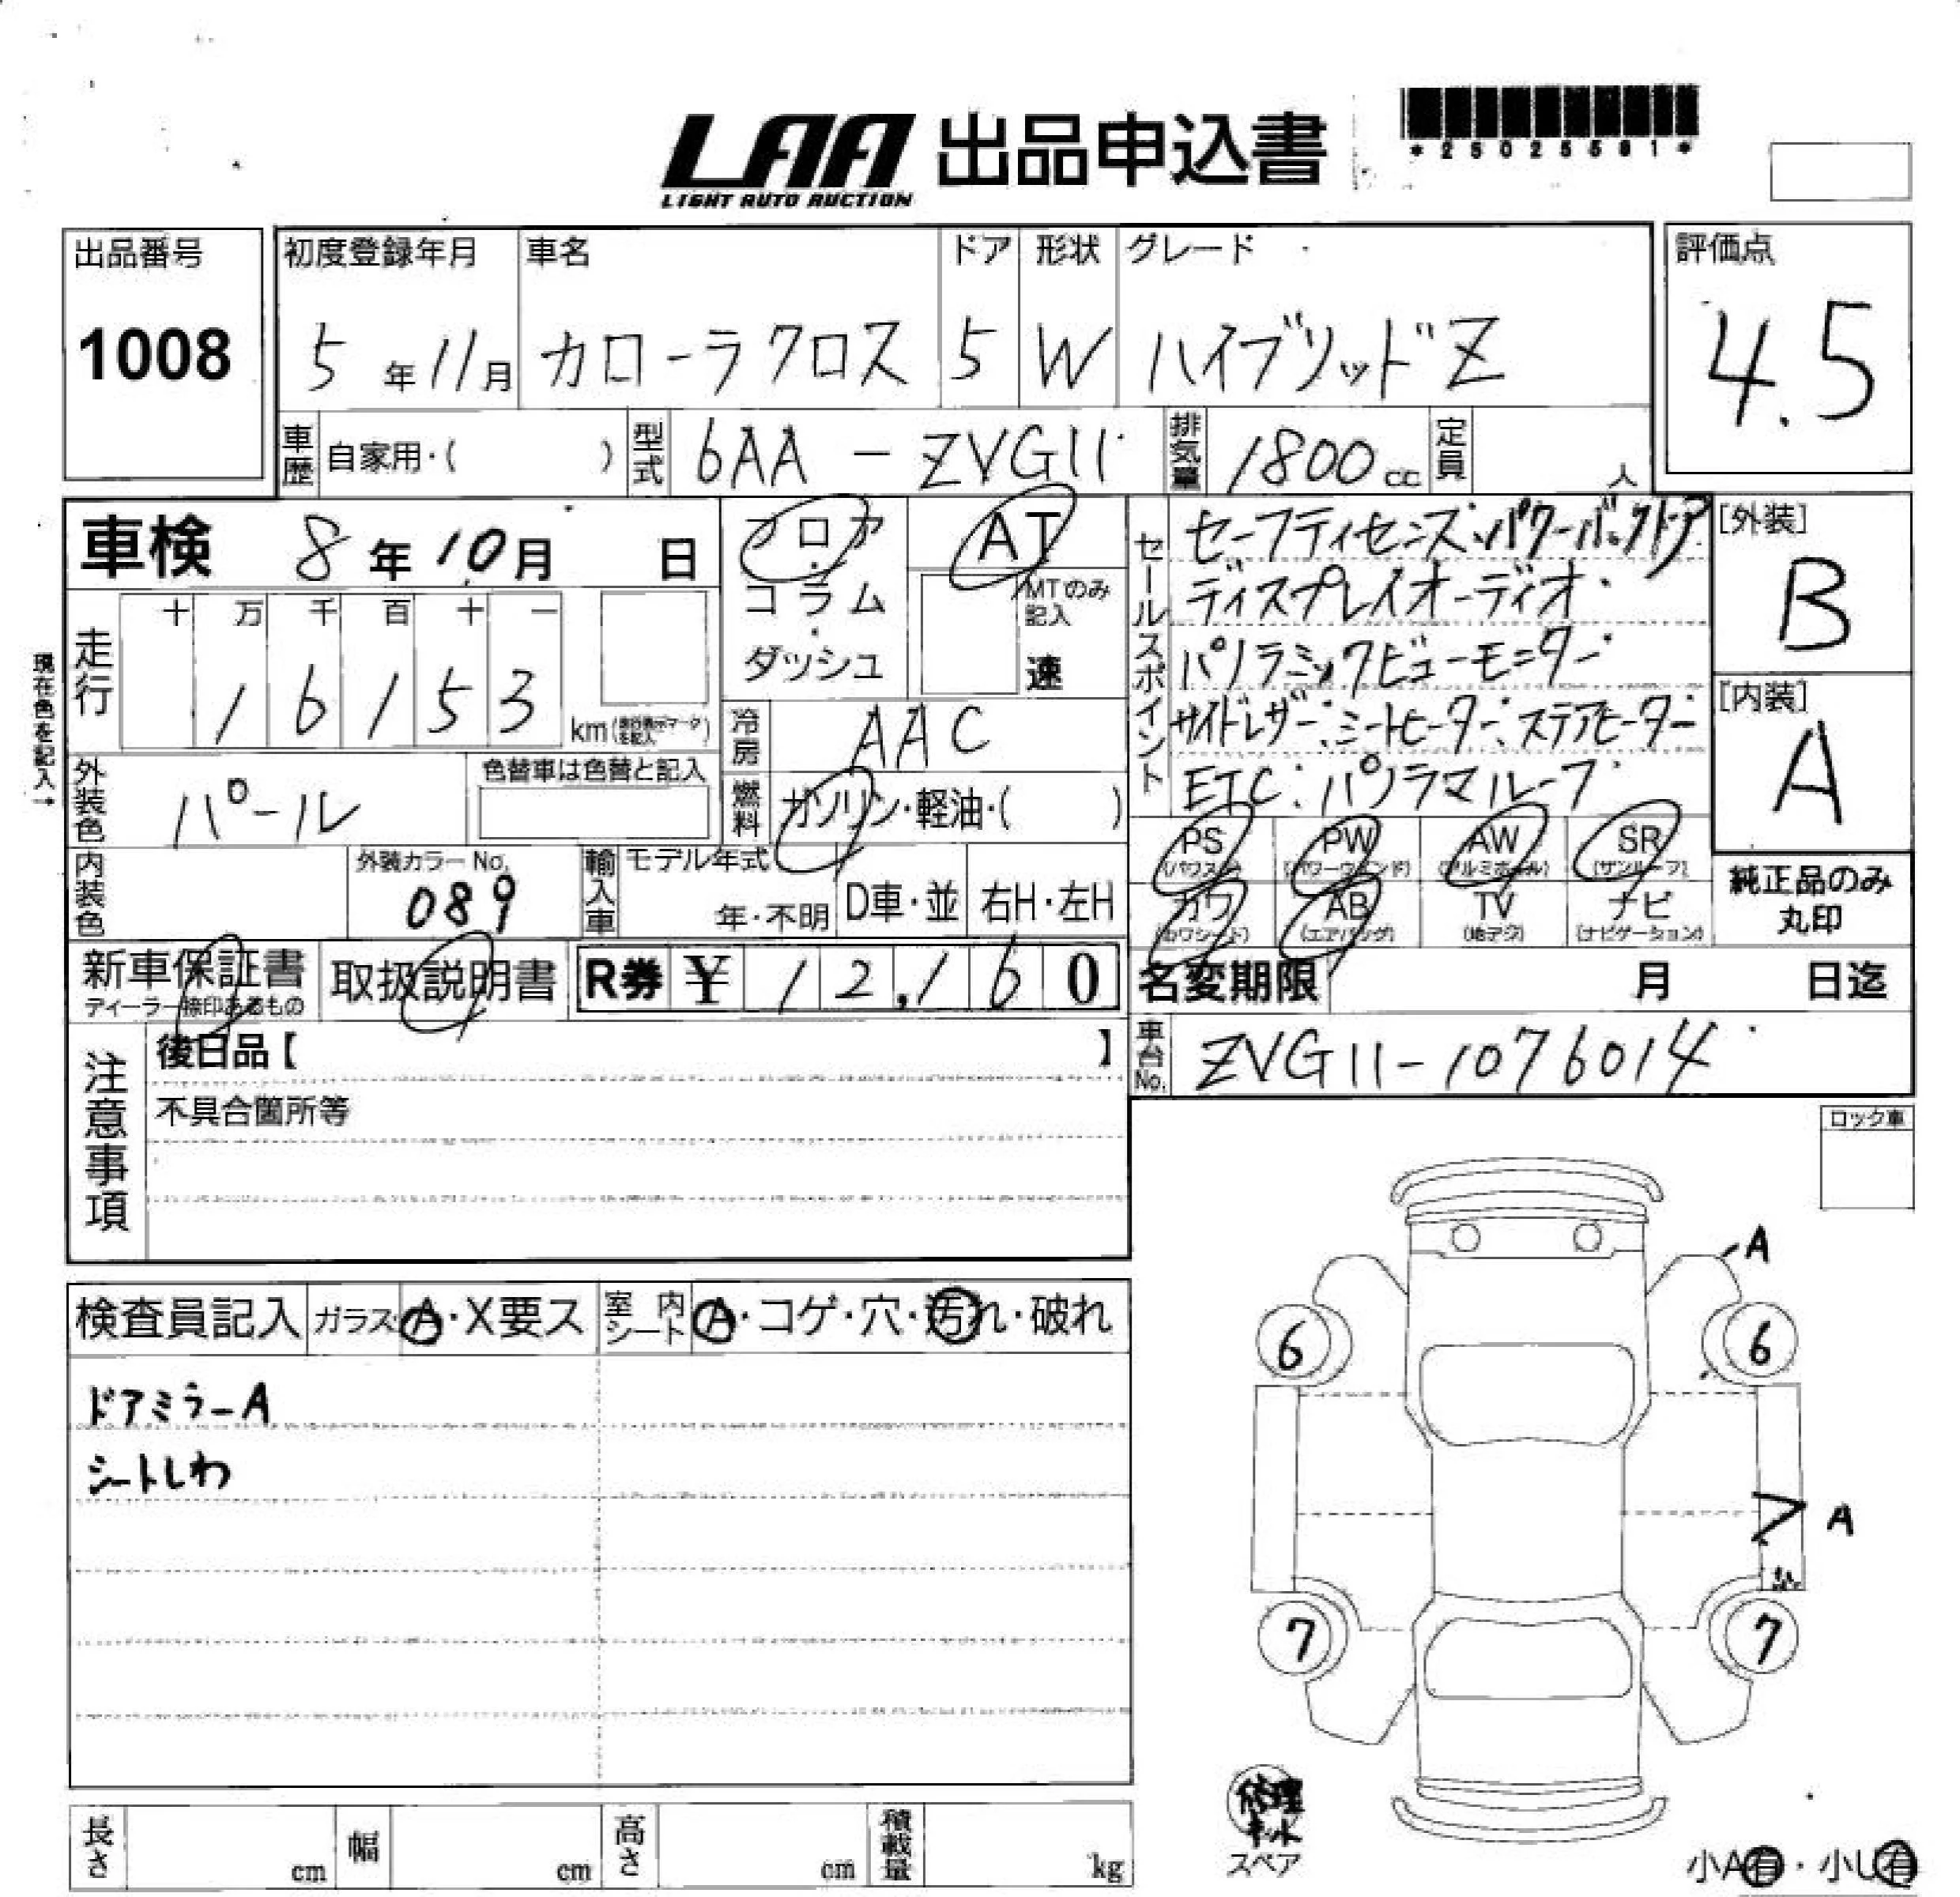 LAA 出品申込書
LIGHT AUTO AUCTION
*25025591*
出品番号
1008
初度登録年月
5年11月
車名
カローラクロス
ドア
5
形状
W
グレード
ハイブリッドZ
評価点
4.5
車歴 自家用・( )
型式 6AA-ZVG11
排気量 1800cc
定員 人
車検 8年10月 日
フロア
コラム
ダッシュ
AT
MTのみ記入
速
セールスポイント
セーフティセンス・パワーバックドア
ディスプレイオーディオ・
パノラミックビューモニター・
サイドレザー・シートヒーター・ステアヒーター
ETC・パノラマルーフ・
[外装]
B
[内装]
A
現在色を記入→
走行
十 万 千 百 十 一
16153 km
冷房 AAC
外装色 パール
色替車は色替と記入
燃料 ガソリン・軽油・( )
内装色
外装カラーNo.
089
輸入車 モデル年式
年・不明
D車・並
右H・左H
PS (パワステ)
PW (パワーウインド)
AW (アルミホイール)
SR (サンルーフ)
カワ (カワシート)
AB (エアバッグ)
TV (地デジ)
ナビ (ナビゲーション)
純正品のみ
丸印
新車保証書
ディーラー捺印あるもの
取扱説明書
R券 ¥12,160
名変期限 月 日迄
車台No. ZVG11-1076014
注意事項
後日品【 】
不具合箇所等
ロック車
検査員記入
ガラス A・X要ス
室内シート A・コゲ・穴・汚れ・破れ
ドアミラーA
シートしわ
A
6
6
A
7
7
修理
キット
スペア
小A有・小U有
長さ cm
幅 cm
高さ cm
積載量 kg